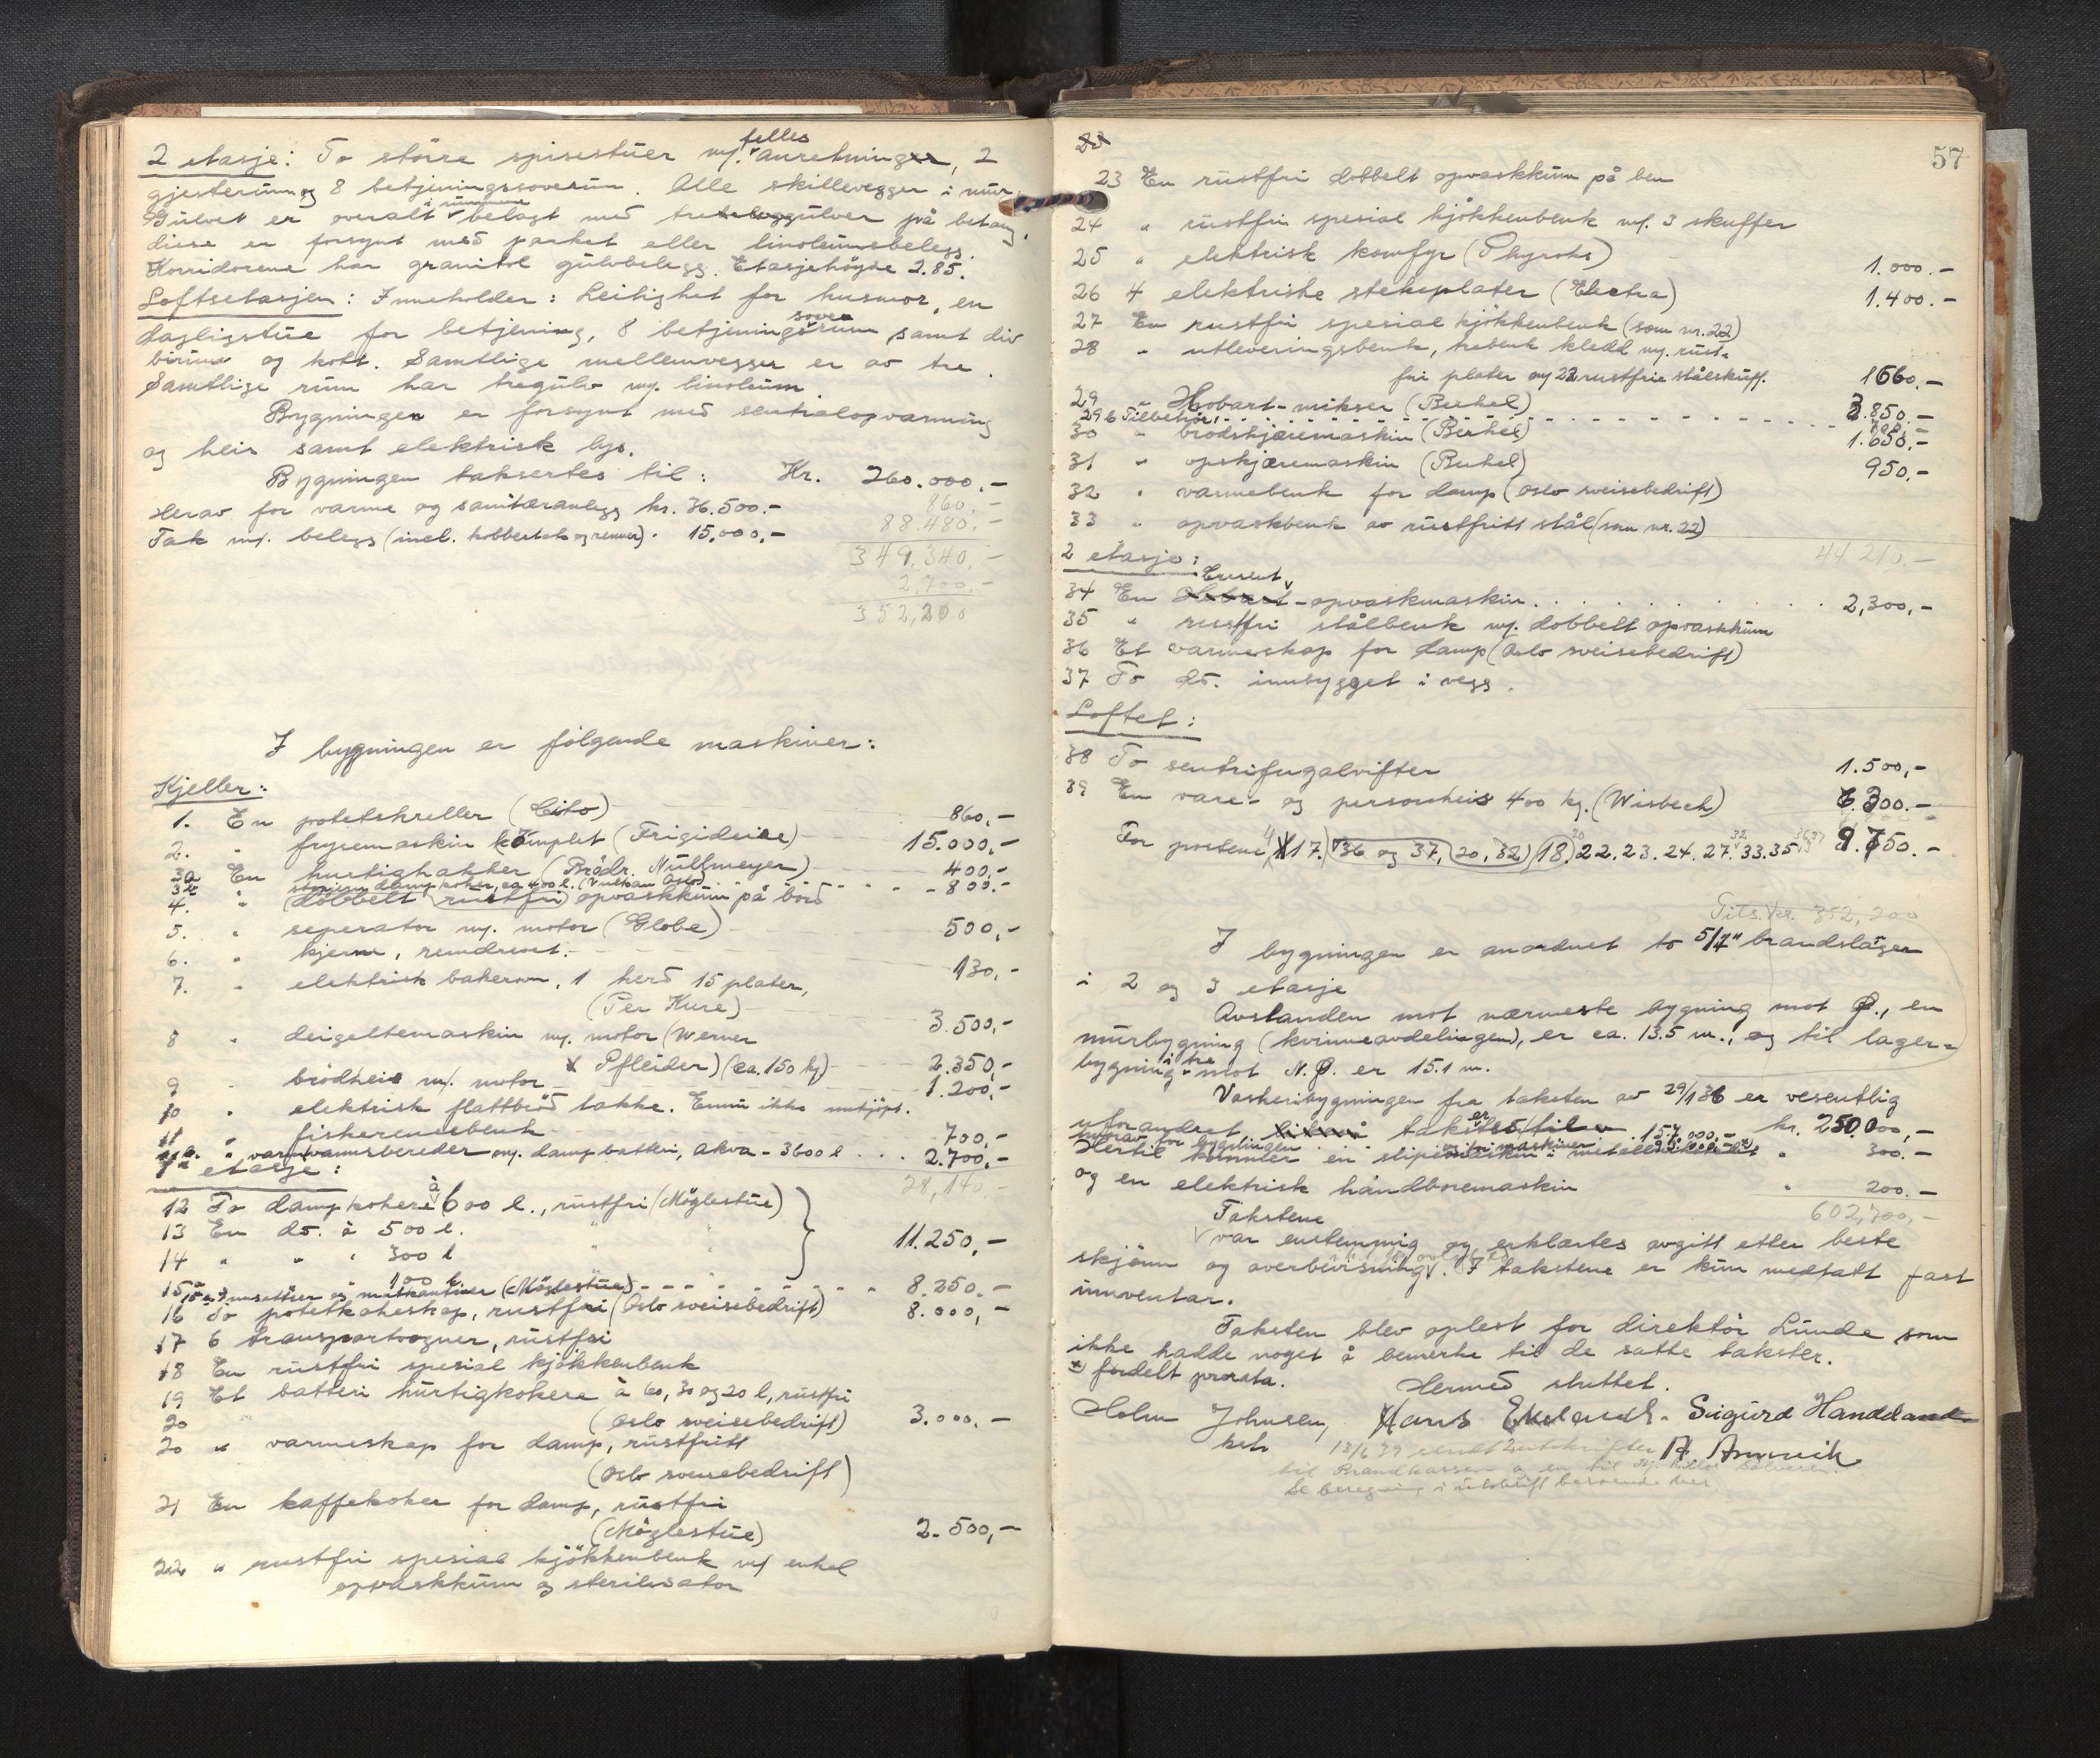 2 etasje: To större spisestuer m/. felles anretninger, 2
gjesterum og 8 betjeningssoverum. Alle skillevegger i mur.
Gulvet er overalt i rummene belagt med tregulver på betong,
disse er forsynt med parket eller linoleumsbelegg.
Korridorene har granitol gulvbelegg. Etasjehöyde 2.85.
Loftsetasjen: Inneholder: Leilighet for husmor, en
dagligstue for betjening, 8 betjeningssoverum samt div
birum og kott. Samtlige mellemvegger er av tre.
Samtlige rum har tregulv m/. linoleum.
Bygningen er forsynt med sentralopvarming
og heis samt elektrisk lys.
Bygningen taksertes til: Kr. 260.000.-
860.-
Herav for varme og sanitæranlegg kr. 36.500.-
88.480.-
Tak m/. belegg (incl. kobbertak og renner) - 15.000,-
349,340,-
2,700.-
352,200
I bygningen er fölgende maskiner:
Kjeller:
1. En potetskreller (Cito) 860,-
2. " frysemaskin komplet (Frigideire) 15.000,-
3a En hurtighakker (Brödr. Müllmeyer) 400,-
3b " damp koker, ca 400 l. (Vulkan Oslo) - 800.-
4. " (dobbelt) (rustfri) opvaskkum på bord
5. " seperator m/. motor (Globe) 500,-
6. " kjerne, remdrevet. 130,-
7. " elektrisk bakerovn, 1 herd 15 plater,
(Per Kure) 3.500,-
8 " deigeltemaskin m/. motor (Werner
& Pfleider) (ca. 150 kg) 2.350,-
9 " brödheis m/. motor 1.200,-
10 " elektrisk flattbröd takke. Ennu ikke innkjöpt.
11 " fiskerensebenk 700,-
11a. " varmtvannsbereder m/. dampbatteri, akva - 3600 l ... 2.700,-
1ste etasje: 28,140.-
12 To dampkokere à 600 l., rustfri (Möglestue)
13 En do. à 500 l. "
14 " " " 300 l " 11.250,-
100 l
15 innsatser og matkantiner (Möglestue) 8.250.-
16 To potetkokeskap, rustfri (Oslo sveisebedrift) 8.000,-
17 6 transportvogner, rustfri
18 En rustfri spesial kjökkenbenk
19 Et batteri hurtigkokere à 60, 30 og 20 l, rustfri
20 (Oslo sveisebedrift) 3.000.-
20 " varmeskap for damp, rustfritt
(Oslo sveisebedrift)
21 En kaffekoker for damp, rustfri
(Möglestue) 2.500,-
22 " rustfri spesial kjökkenbenk m/ enkel
opvaskkum og sterilisator
23
57
23 En rustfri dobbelt opvaskkum på ben
24 " rustfri spesial kjökkenbenk m/. 3 skuffer
25 " elektrisk komfyr (Thyrohs) 1.000.-
26 4 elektriske stekeplater (Electra) 1.400.-
27 En rustfri spesial kjökkenbenk (som nr. 22)
28 " utleveringsbenk, trebenk kledd m/. rust-
fri plater og 22 rustfrie stålskuff. 1660.-
29 " Hobart-mikser (Berkel) 3.850.-
29b Tilbehör:
30 " brödskjæremaskin (Berkel) 1.650,-
31 " opskjæremaskin (Berkel) 950,-
32 " varmebenk for damp (Oslo sveisebedrift)
33 " opvaskbenk av rustfritt stål (som nr. 22)
2 etasje: 44 210.-
34 En Hobart Cresent-opvaskmaskin 2,300,-
35 " rustfri stålbenk m/. dobbelt opvaskkum
36 Et varmeskap for damp (Oslo sveisebedrift)
37 To do. innbygget i vegg.
Loftet:
38 To sentrifugalvifter 1.500,-
39 En vare- og personheis 400 kg. (Wisbech) 6.300.-
For postene 4, 17. 36 og 37, (20, 32) (18. 20 22. 23. 24. 27. 32 33. 35 36 37 9.750.-
Tils. kr. 352,200
I bygningen er anordnet to 5/4" brandslager
i 2 og 3 etasje
Avstanden mot nærmeste bygning mot Ø., en
murbygning (kvinneavdelingen), er ca. 13.5 m., og til lager-
bygning i tre mot N.Ø. er 15.1 m.
Vaskeribygningen fra taksten av 29/1 36 er vesentlig
uforandret takst er kr. 250.000,-
hvorav for bygningen 157.000,-
Hertil kommer en slipemaskin " 300.-
og en elektrisk håndboremaskin " 200.-
602,700,-
Takstene
var enstemmig og erklærtes avgitt etter beste
skjönn og overbevisning. I takstene er kun medtatt fast
innventar.
Taksten blev oplest for direktör Lunde som
ikke hadde noget å bemerke til de satte takster.
x) fordelt prorata. Hermed sluttet.
Holm Johnsen, Hans Sigurd
A. Ammvik
13/6 39 sendt 2 utskrifter
til Brandkassen